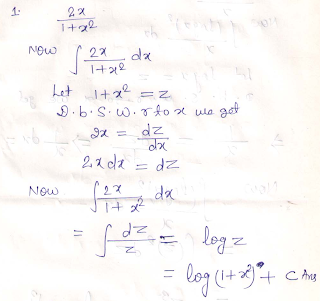 1. 2x / 1+x²
Now ∫ 2x / 1+x² dx
Let 1+x² = z
D.b.S.w.r to x we get
2x = dz / dx
2x dx = dz
Now ∫ 2x / 1+x² dx
= ∫ dz / z = log z
= log (1+x²) + C Ans